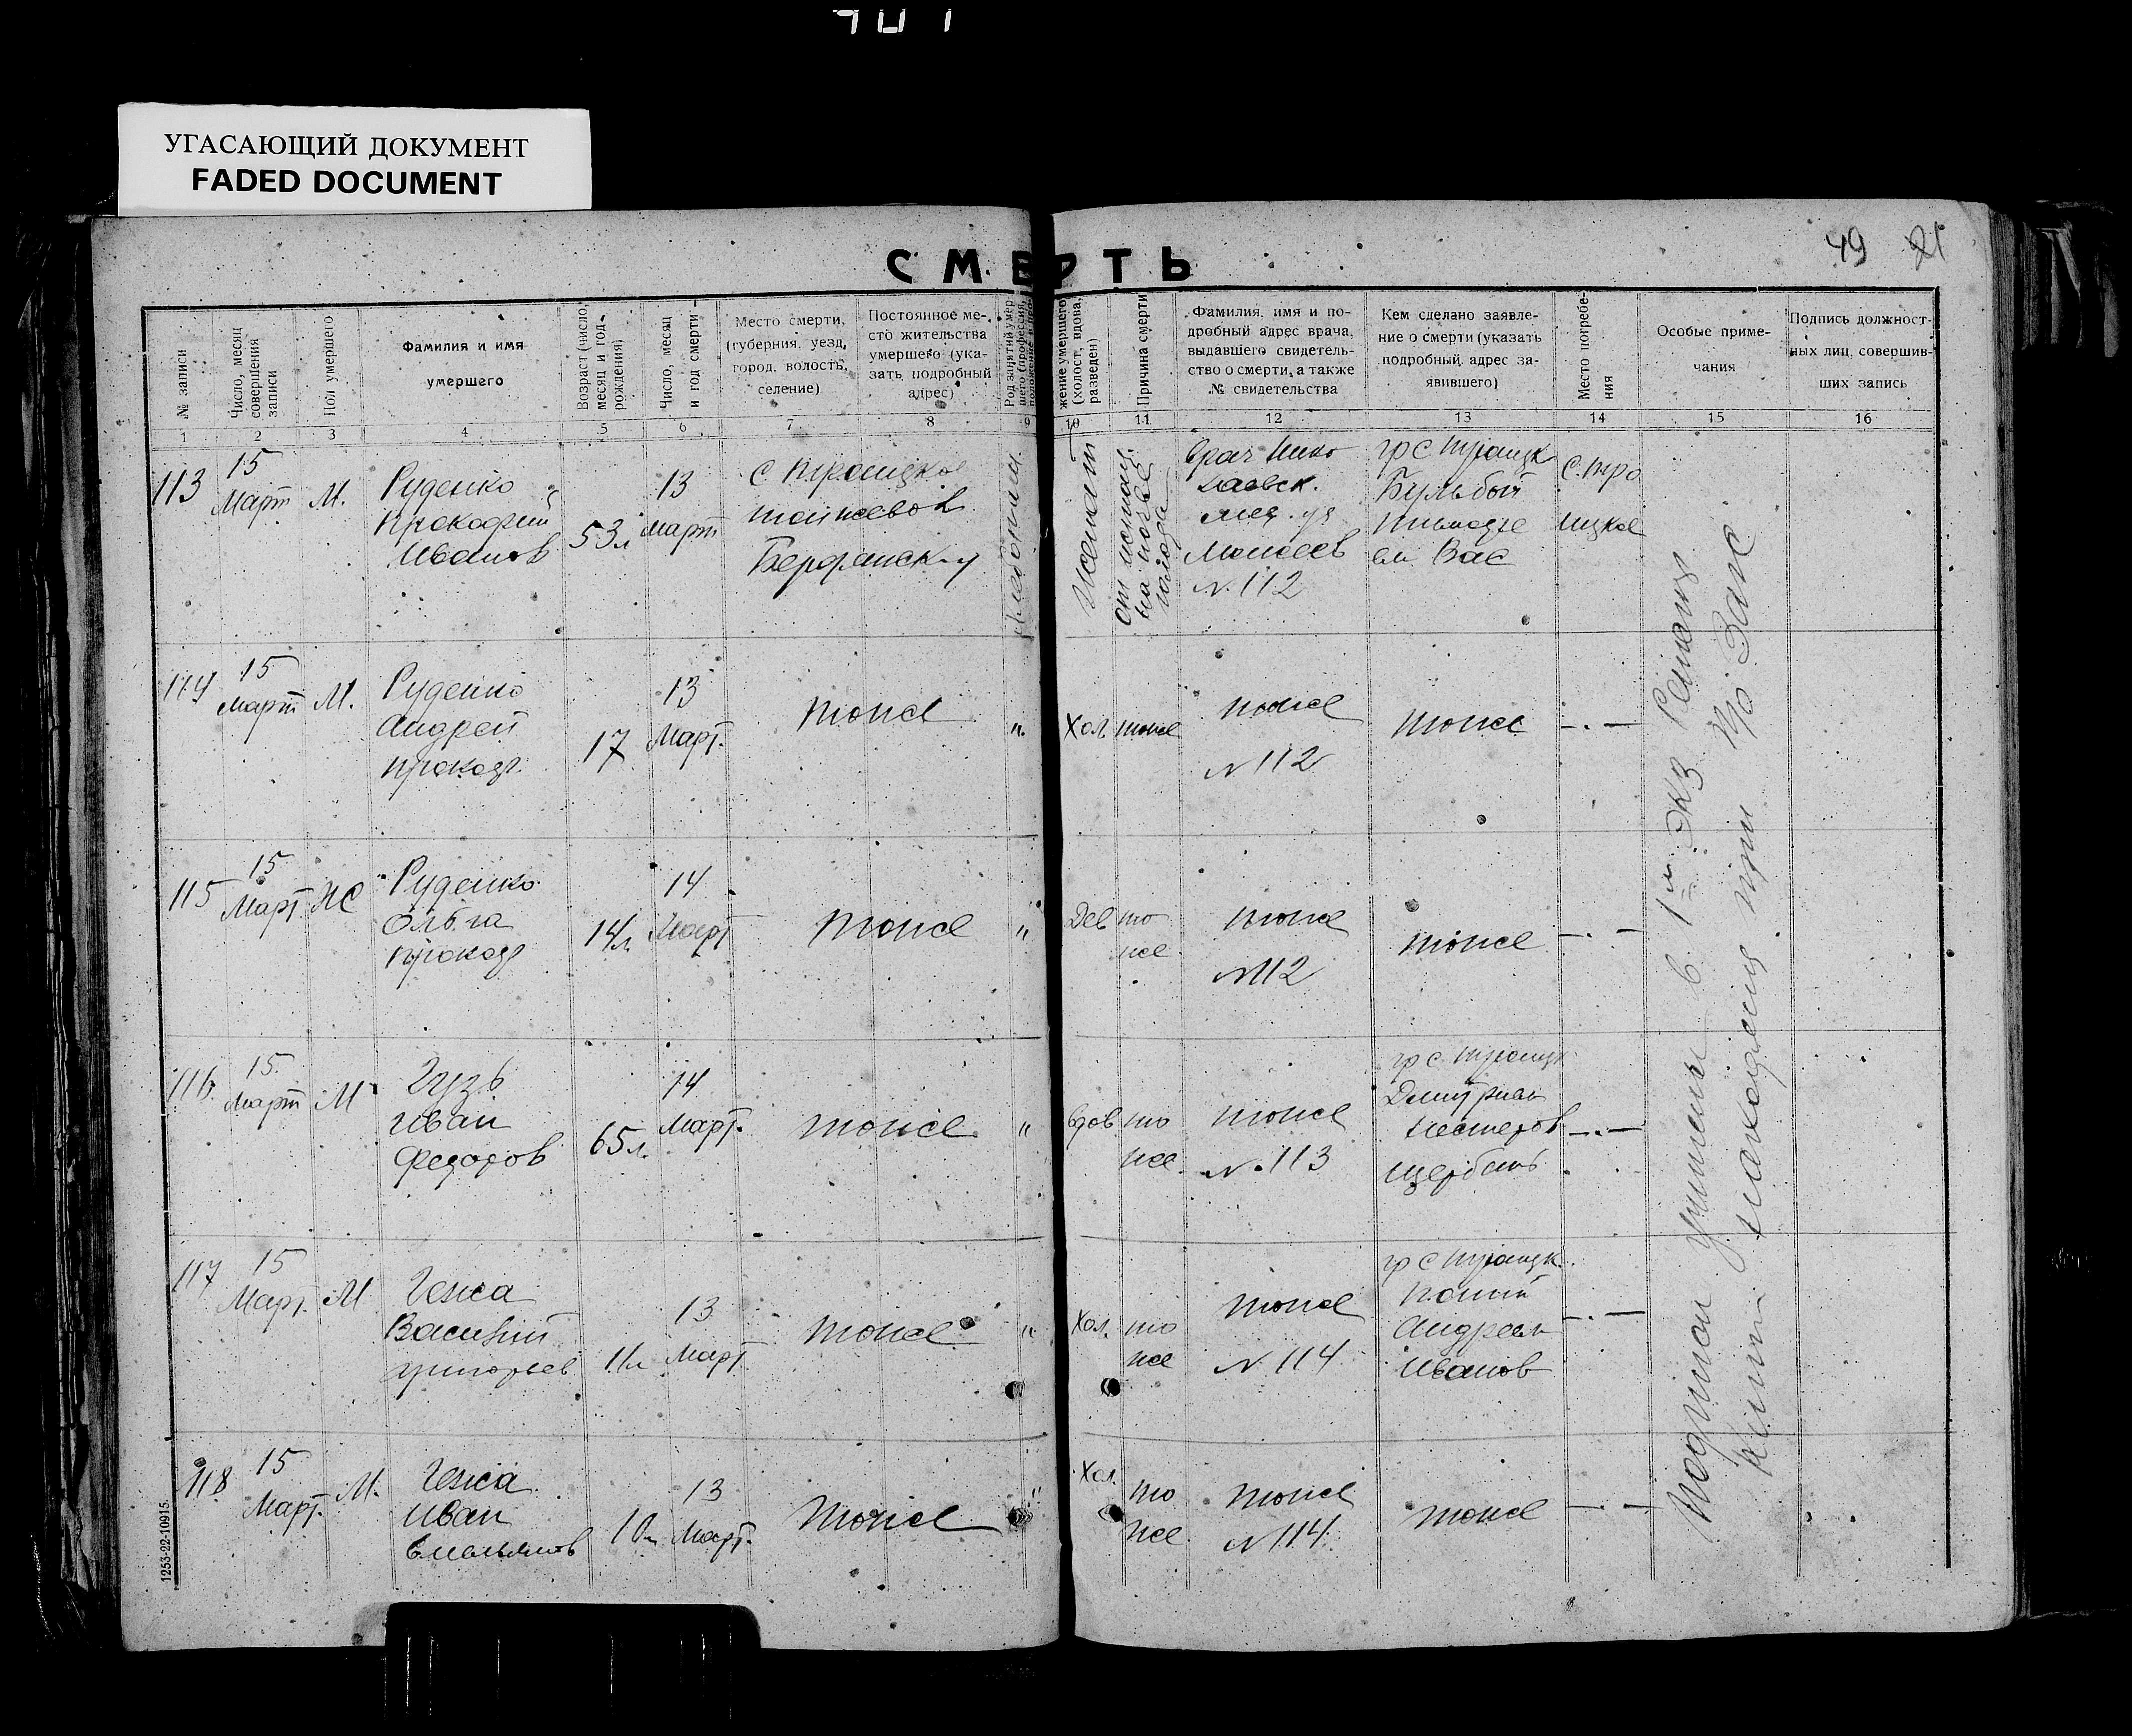 УГАСАЮЩИЙ ДОКУМЕНТ
FADED DOCUMENT
49 21
СМЕРТЬ
№ записи
Число, месяц
совершения
записи
Пол умершего
Фамилия и имя
умершего
Возраст (число,
месяц и год
рождения)
Число, месяц
и год смерти
Место смерти,
(губерния, уезд,
город, волость,
селение)
Постоянное ме-
сто жительства
умершего (ука-
зать подробный
адрес)
Род занятий умер-
шего (профессия,
жение умершего
(холост, вдова,
разведен)
Причина смерти
Фамилия, имя и по-
дробный адрес врача,
выдавшего свидетель-
ство о смерти, а также
№ свидетельства
Кем сделано заявле-
ние о смерти (указать
подробный адрес за-
явившего)
Место погребе-
ния
Особые приме-
чания
Подпись должност-
ных лиц, совершив-
ших запись
1 2 3 4 5 6 7 8 9 10 11 12 13 14 15 16
113
15
Март
М.
Руденко
Прокофий
Иванов
53 л
13
март
с Троицкое
Бердянск. у
хлебопаш.
Женат
от истощ.
на почве
голода
врач Нико
лаевск.
мед. уч
Моисеев
N. 112
гр с Троицк
Бульбый
Вас
с. Тро
ицкое
114
15
Март
М.
Руденко
Андрей
Прокоф.
17
13
Март.
тоже
"
Хол.
тоже
тоже
N 112
тоже
—.—
115
15
Март
Ж
Руденко
Ольга
Прокоф
14 л
14
Март
тоже
"
Дев
то
же
тоже
N 112
тоже
—.—
116
15
Март
М
Гузь
Иван
Федоров
65 л.
14
Март.
тоже
"
вдов
то
же.
тоже
N. 113
гр с. Троицк
Дмитриан
Нестеров
Щербань
—.—
117
15
Март.
М
Гежа
Василий
Григорьев
11 л
13
Март
тоже
"
Хол.
то
же
тоже
N 114
гр с Троицк.
Андреем
Иванов
—.—
118
15
Март.
М.
Гежа
Иван
Емельянов
10 л
13
Март.
тоже
"
Хол.
то
же.
тоже
N 114
тоже
—.—
в 1м экз
книги находящ. при
Загс
1253-22-10915.